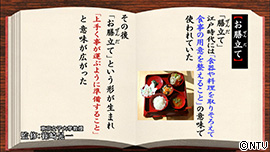 【お膳立て】
ぜんだ
「膳立て」という
江戸時代には「食器や料理を取りそろえて
食事の用意を整えること」の意味で
使われていた
その後
ぜんだ
「お膳立て」という形が生まれ
「上手く事が運ぶように準備すること」
と意味が広がった
©NTV